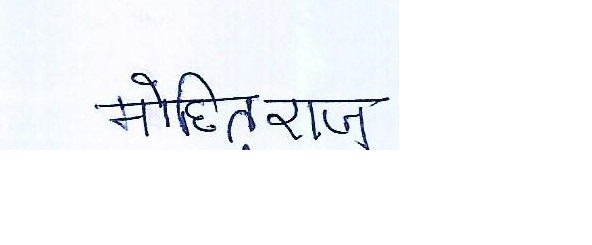 मोहित राज